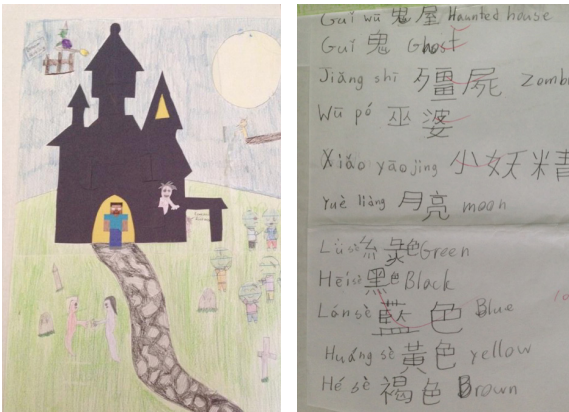 Guǐ wū 鬼屋 Haunted house
Guǐ 鬼 Ghost
Jiāng shī 殭屍 Zomb
Wū pó 巫婆
Xiǎo yāo jing 小妖精
yuè liàng 月亮 moon
Lǜ sè 綠色 Green
Hēi sè 黑色 Black
Lán sè 藍色 Blue
Huáng sè 黃色 yellow
Hé sè 褐色 Brown